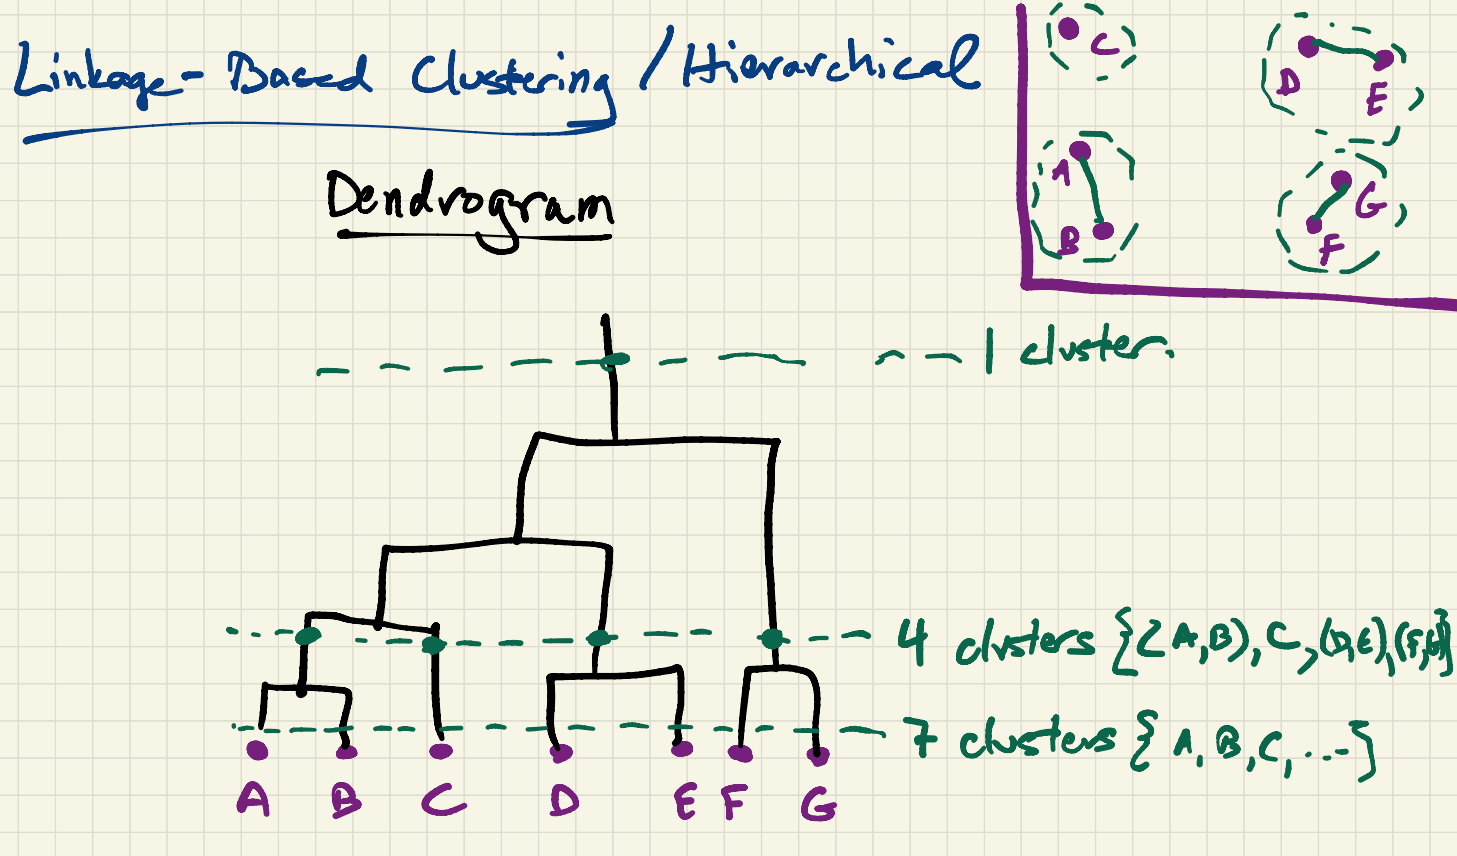 Linkage-Based Clustering / Hierarchical
Dendrogram
C
D
E
A
B
G
F
1 cluster.
4 clusters {(A,B), C, (D,E), (F,G)}
7 clusters {A, B, C, ...}
A B C D E F G